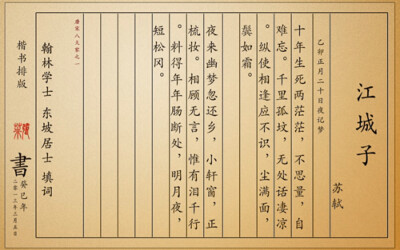 江城子
苏轼
乙卯正月二十日夜记梦
十年生死两茫茫，不思量，自
难忘。千里孤坟，无处话凄凉
。纵使相逢应不识，尘满面，
鬓如霜。
夜来幽梦忽还乡，小轩窗，正
梳妆。相顾无言，惟有泪千行
。料得年年肠断处，明月夜，
短松冈。
唐宋八大家之一
翰林学士 东坡居士 填词
楷书排版
書
癸巳年
二零一三年三月五日